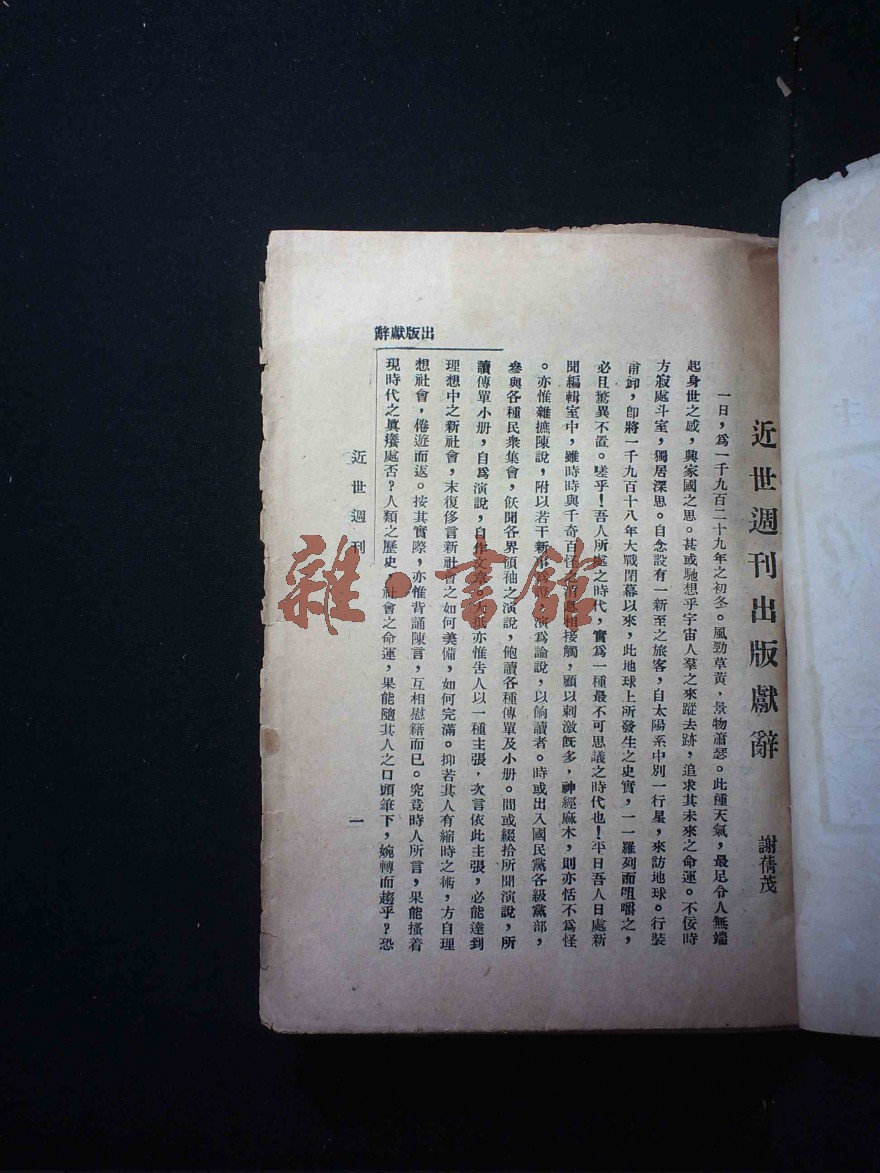 近世週刊出版獻辭
謝蒨茂
一日，爲一千九百二十九年之初冬。風勁草黃，景物蕭瑟。此種天氣，最足令人無端
起身世之感，興家國之思。甚或馳想乎宇宙人羣之來蹤去跡，追求其未來之命運。不佞時
方寂處斗室，獨居深思。自念設有一新至之旅客，自太陽系中別一行星，來訪地球。行裝
甫卸，卽將一千九百十八年大戰閉幕以來，此地球上所發生之史實，一一羅列而咀嚼之，
必且驚異不置。嗟乎！吾人所處之時代，實爲一種最不可思議之時代也！平日吾人日處新
聞編輯室中，雖時時與千奇百怪之消息相接觸，顧以刺激旣多，神經麻木，則亦恬不爲怪
。亦惟雜摭陳說，附以若干新事爲證，演爲論說，以餉讀者。時或出入國民黨各級黨部，
參與各種民衆集會，飫聞各界領袖之演說，飽讀各種傳單及小册。間或綴拾所聞演說，所
讀傳單小册，自爲演說，自作文章。大抵亦惟告人以一種主張，次言依此主張，必能達到
理想中之新社會，末復侈言新社會之如何美備，如何完滿。抑若其人有縮時之術，方自理
想社會，倦遊而返。按其實際，亦惟背誦陳言，互相慰藉而已。究竟時人所言，果能搔着
現時代之眞癢處否？人類之歷史，社會之命運，果能隨其人之口頭筆下，婉轉而趨乎？恐
出版獻辭
近世週刊
一
雜·書館